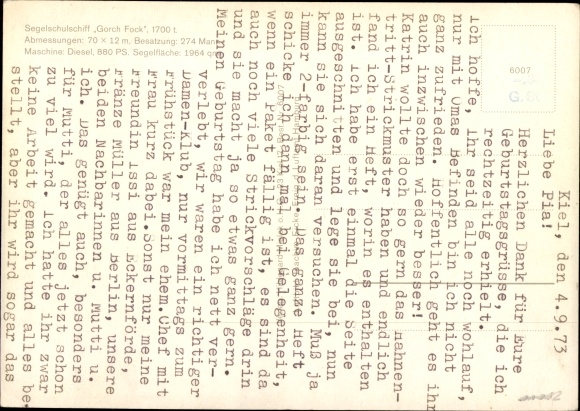 Segelschulschiff „Gorch Fock", 1700 t.
Abmessungen: 70 × 12 m, Besatzung: 274 Mann
Maschine: Diesel, 880 PS. Segelfläche: 1964 qm
6007
Kiel, den 4.9.73
Liebe Pia!
Herzlichen Dank für Eure
Geburtstagsgrüsse, die ich
rechtzeitig erhielt.
Ich hoffe, Ihr seid alle noch wohlauf,
nur mit Omas Befinden bin ich nicht
ganz zufrieden. Hoffentlich geht es ihr
auch inzwischen wieder besser!
Katrin wollte doch so gern das Hahnen-
tritt-Strickmuster haben und endlich
fand ich ein Heft, worin es enthalten
ist. Ich habe erst einmal die Seite
ausgeschnitten und lege sie bei, nun
kann sie sich daran versuchen. Muß ja
immer 2-farbig sein. Das ganze Heft
schicke ich dann mal bei Gelegenheit,
wenn ein Paket fällig ist, es sind da
auch noch viele Strickvorschläge drin
und sie macht ja so etwas ganz gern.
Meinen Geburtstag habe ich nett ver-
verlebt, wir waren ein richtiger
Damen-Klub, nur vormittags zum
Frühstück war mein ehem.Chef mit
Frau kurz dabei.Sonst nur meine
Freundin Issi aus Eckernförde,
Fränze Müller aus Berlin, unsere
beiden Nachbarinnen u. Mutti u.
ich. Das genügt auch, besonders
für Mutti, der alles jetzt schon
zu viel wird. Ich hatte ihr zwar
keine Arbeit gemacht und alles be-
stellt, aber ihr wird sogar das